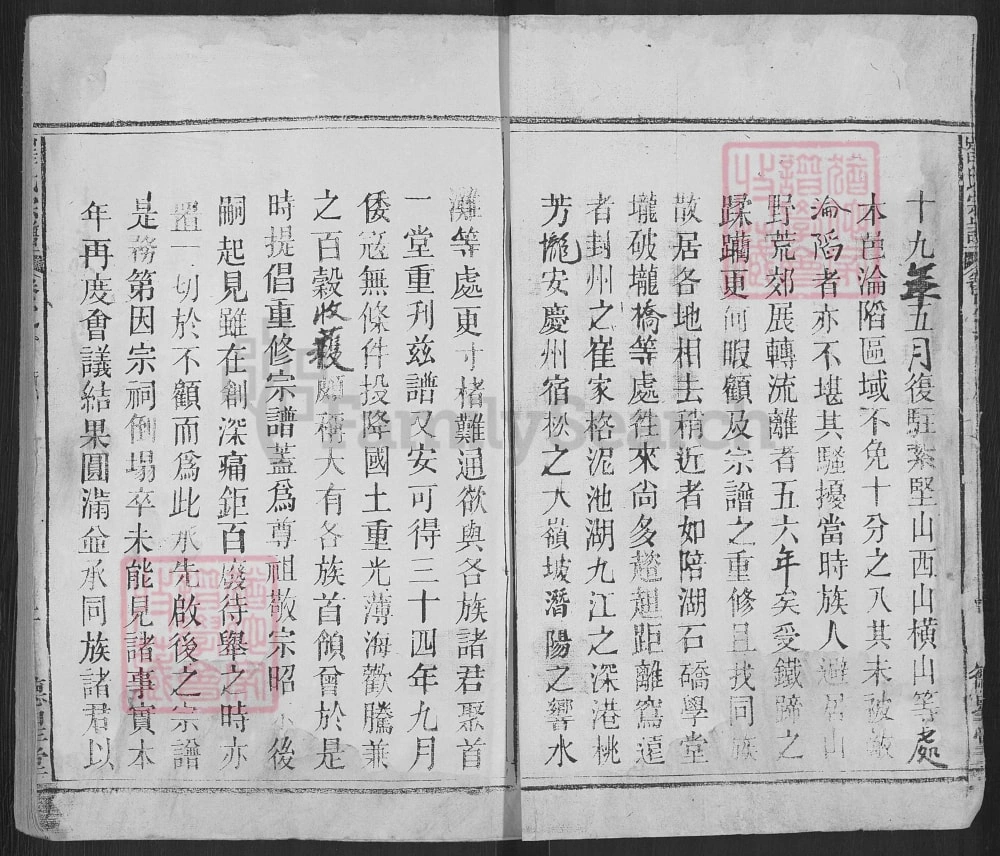 十九年五月復駐紮堅山西山橫山等處
本邑淪陷區域不免十分之八其未被敵
淪陷者亦不堪其騷擾當時族人避居山
野荒郊展轉流離者五六年矣受鐵蹄之
蹂躪更何暇顧及宗譜之重修且我同族
散居各地相去稍近者如陪湖石磽學堂
壠破壠橋等處徃來尚多趑趄距離窵遠
者封州之崔家格泥池湖九江之深港桃
芳壠安慶州宿松之大嶺坡潛陽之響水
灘等處更寸楮難通欲與各族諸君聚首
一堂重刊玆譜又安可得三十四年九月
倭寇無條件投降國土重光薄海歡騰兼
之百穀收穫頗稱大有各族首傾會於是
時提倡重修宗譜蓋爲尊祖敬宗昭後
嗣起見雖在創深痛鉅百廢待舉之時亦
置一切於不顧而爲此承先啟後之宗譜
是務第因宗祠倒塲卒未能見諸事實本
年再度會議結果圓滿並承同族諸君以
FamilySearch